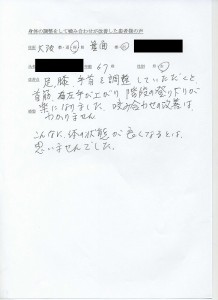 身体の調整をして噛み合わせが改善した患者様の声
住所 大阪 都・道・府・県 箕面 市
年齢 47 才 性別 男・女
足、膝、手首を調整していただくと
首筋、右左手が上がり、階段の登り下りが
楽になりました。咬み合わせの改善は、
わかりません
こんなに体の状態が良くなるとは、
思いませんでした。